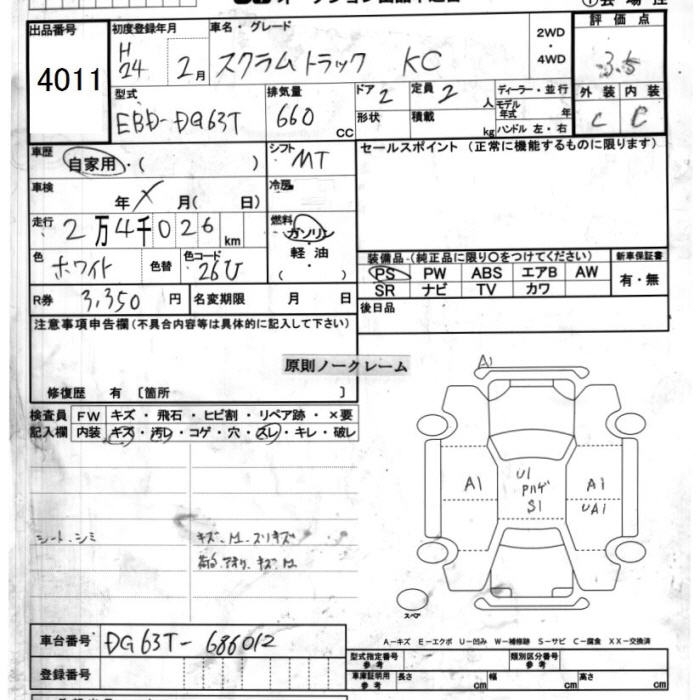 出品番号
4011
初度登録年月
H
24 2月
車名・グレード
スクラムトラック KC
2WD
・
4WD
評価点
3.5
型式
EBD-DG63T
排気量
660 CC
ドア 2
定員 2 人
形状
積載 kg
ディーラー・並行
モデル
年式 年
ハンドル 左・右
外装 内装
C C
車歴
自家用・( )
シフト MT
セールスポイント (正常に機能するものに限ります)
車検
年 月( 日)
冷房
走行
2万4千026 km
燃料
ガソリン
・
軽油
( )
色
ホワイト
色替
色コード
26U
装備品(純正品に限り○をつけてください)
新車保証書
PS PW ABS エアB AW
SR ナビ TV カワ
有・無
R券 3,350 円
名変期限 月 日
後日品
注意事項申告欄(不具合内容等は具体的に記入して下さい)
原則ノークレーム
修復歴 有 〔箇所 〕
検査員 FW キズ・飛石・ヒビ割・リペア跡・×要
記入欄 内装 キズ・汚レ・コゲ・穴・スレ・キレ・破レ
A1
A1
U1
Pハゲ
S1
A1
UA1
シート、シミ
スペア
車台番号 DG63T-686012
A-キズ E-エクボ U-凹み W-補修跡 S-サビ C-腐食 XX-交換済
登録番号
型式指定番号
参考
類別区分番号
参考
車庫証明用
参考
長さ cm 幅 cm 高さ cm